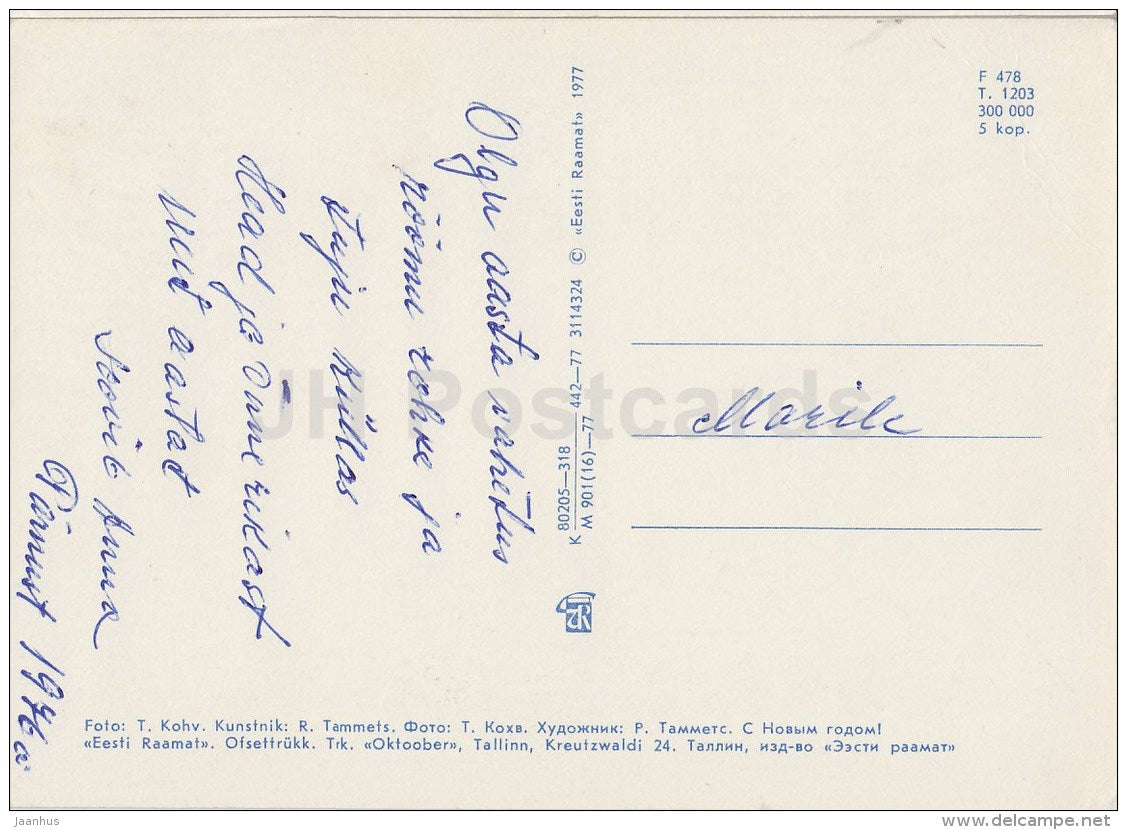 Olgu aasta vahetus
rõõmu rohke ja
tuju küllas
Head ja Õnnerikast
Uut aastat
Soovib Anna
Pärnust 197 a.
K 80205—318 442—77 3114324 © «Eesti Raamat» 1977
M 901(16)—77
F 478
T. 1203
300 000
5 kop.
Marile
Foto: T. Kohv. Kunstnik: R. Tammets. Фото: Т. Кохв. Художник: Р. Тамметс. С Новым годом!
«Eesti Raamat». Ofsettrükk. Trk. «Oktoober», Tallinn, Kreutzwaldi 24. Таллин, изд-во «Ээсти раамат»
JH Postcards
Jaanhus
delcampe.net